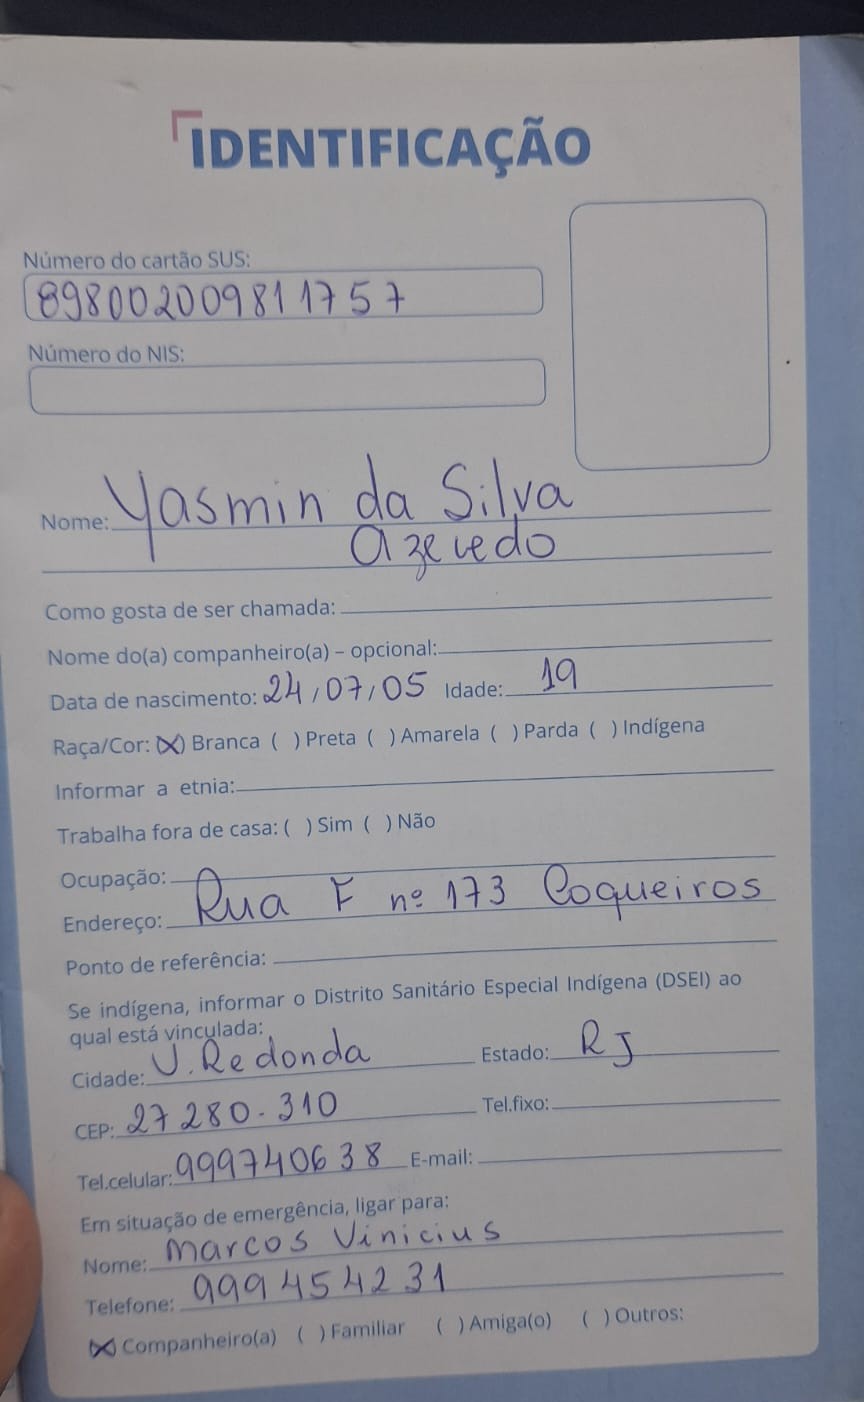 IDENTIFICAÇÃO
Número do cartão SUS:
898002009811757
Número do NIS:
Nome: Yasmin da Silva
Azevedo
Como gosta de ser chamada:
Nome do(a) companheiro(a) – opcional:
Data de nascimento: 24/07/05 Idade: 19
Raça/Cor: (X) Branca ( ) Preta ( ) Amarela ( ) Parda ( ) Indígena
Informar a etnia:
Trabalha fora de casa: ( ) Sim ( ) Não
Ocupação:
Endereço: Rua F nº 173 Coqueiros
Ponto de referência:
Se indígena, informar o Distrito Sanitário Especial Indígena (DSEI) ao
qual está vinculada:
Cidade: V. Redonda Estado: RJ
CEP: 27280-310 Tel.fixo:
Tel.celular: 999740638 E-mail:
Em situação de emergência, ligar para:
Nome: Marcos Vinicius
Telefone: 999454231
(X) Companheiro(a) ( ) Familiar ( ) Amiga(o) ( ) Outros: